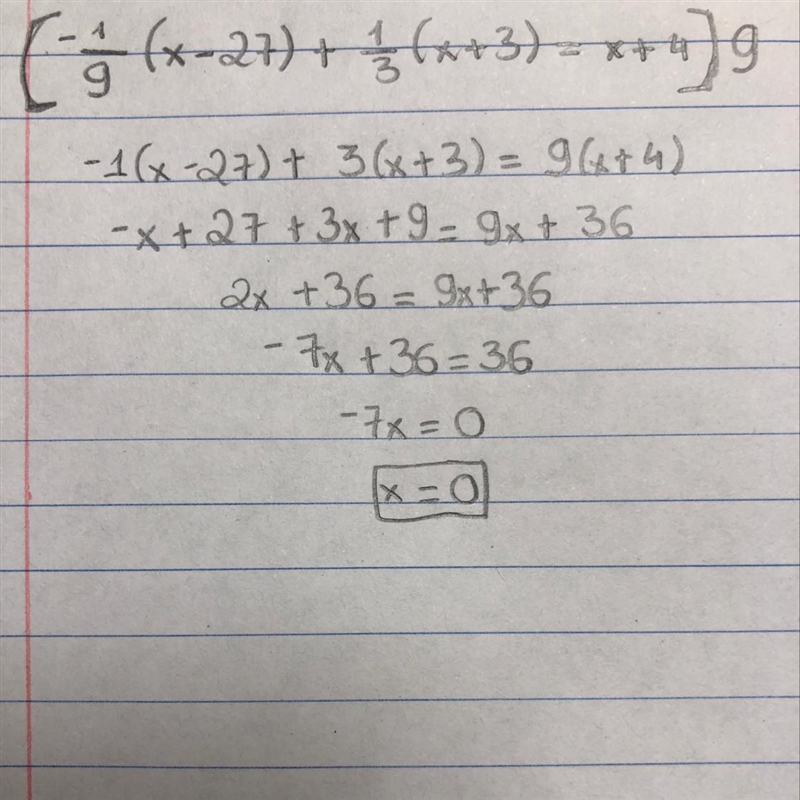 [-1/9 (x-27) + 1/3 (x+3) = x+4] 9
-1(x-27) + 3(x+3) = 9(x+4)
-x + 27 + 3x + 9 = 9x + 36
2x + 36 = 9x+36
-7x + 36 = 36
-7x = 0
x = 0